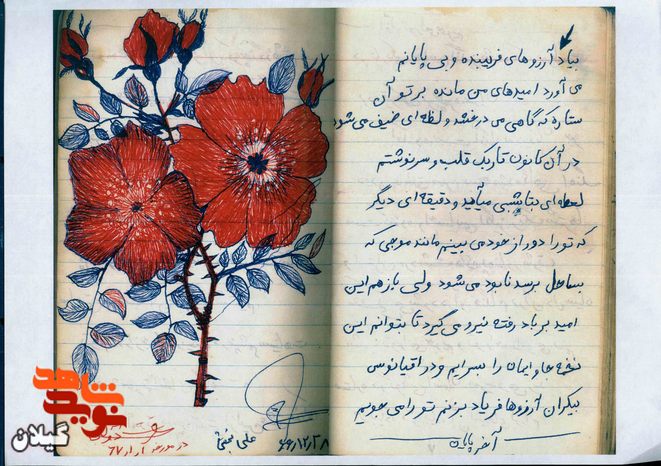 بیاد آرزوهای فریبنده و بی پایانم
می آورد امیدهای من مانده بر تو آن
ستاره که گاهی می درخشد و لحظه ای ضعیف می شود
در آن کانون تاریک قلب و سرنوشتم
لحظه ای بتابشی میآید و دقیقه ای دیگر
که تو را دور از خود می بینم مانند موجی که
بساحل برسد نابود می شود ولی باز هم این
امید بر باد رفته نیرو می گیرد تا بتوانم این
نغمه جاویدان را بسرایم و در اقیانوس
بیکران آرزوها فریاد بزنم تو را می جویم
آخر پایان
علی
۶۶/۱۲/۲۸
در مورخه ۶۷
شاهد
نوید
گیلان